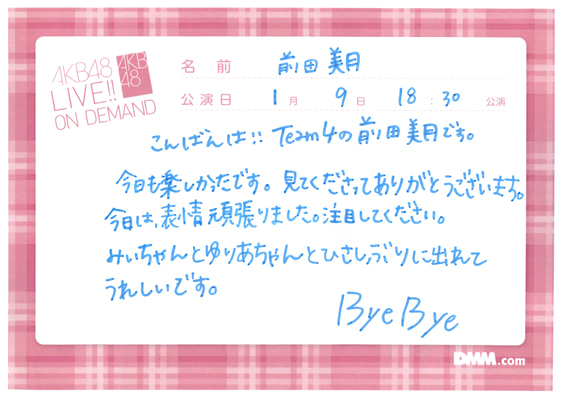 AKB48
LIVE!!
ON DEMAND
AKB
48
名前 前田美月
公演日 1月 9日 18:30 公演
こんばんは!! Team4の前田美月です。
今日も楽しかったです。見てくださってありがとうございます。
今日は、表情頑張りました。注目してください。
みぃちゃんとゆりあちゃんとひさしぶりに出れて
うれしいです。
Bye Bye
DMM.com